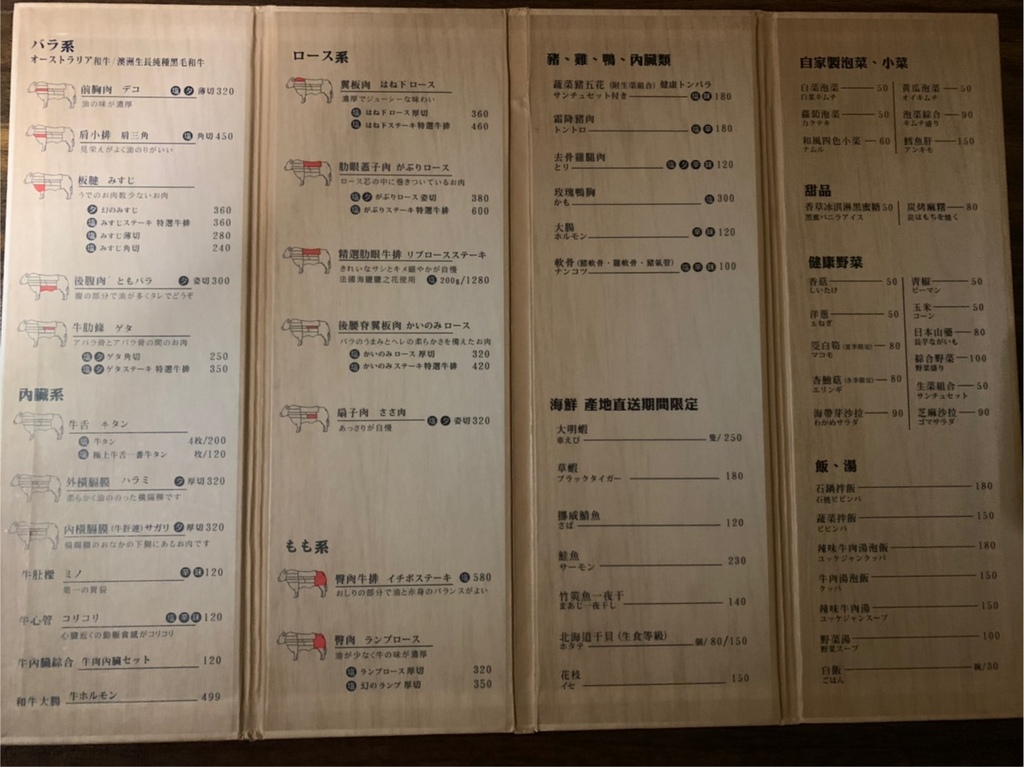 バラ系
オーストラリア和牛/澳洲生長純種黑毛和牛
前胸肉 デコ 塩 タ 薄切320
油の味が濃厚
肩小排 肩三角 塩 角切450
見栄えがよく油のりがいい
板腱 みすじ
うでのお肉数少ないお肉
タ 幻のみすじ 360
塩 みすじステーキ 特選牛排 360
塩 みすじ薄切 280
塩 みすじ角切 240
後腹肉 ともバラ タ 姿切300
腹の部分で油が多くタレでどうぞ
牛肋條 ゲタ
アバラ骨とアバラ骨の間のお肉
塩 タ ゲタ角切 250
塩 タ ゲタステーキ 特選牛排 350
內臟系
牛舌 ネタン
塩 牛タン 4枚/200
塩 極上牛舌一番牛タン 枚/120
外橫膈膜 ハラミ タ 厚切320
柔らかく油ののった橫隔膜です
內橫膈膜(牛肝連)サガリ タ 厚切320
橫隔膜のおなかの下側にあるお肉です
牛肚樑 ミノ 辛 味 120
第一の胃袋
牛心管 コリコリ 塩 辛 味 120
心臟近くの動脈食感がコリコリ
牛內臟綜合 牛肉內臟セット 120
和牛大腸 牛ホルモン 499
ロース系
翼板肉 はね下ロース
濃厚でジューシーな味わい
塩 はね下ロース 厚切 360
塩 はね下ステーキ 特選牛排 460
肋眼蓋子肉 がぶりロース
ロース芯の中に巻きついているお肉
塩 タ がぶりロース 姿切 380
塩 がぶりステーキ 特選牛排 600
精選肋眼牛排 リブロースステーキ
きれいなサシとキメ細やかが自慢
法國海鹽鹽之花使用 塩 200g/1280
後腰脊翼板肉 かいのみロース
バラのうまみとヘレの柔らかさを備えたお肉
塩 かいのみロース 厚切 320
塩 かいのみステーキ 特選牛排 420
扇子肉 ささ肉 塩 タ 姿切320
あっさりが自慢
もも系
臀肉牛排 イチボステーキ 塩 580
おしりの部分で油と赤身のバランスがよい
臀肉 ランプロース
油が少なく牛の味が濃厚
塩 ランプロース 厚切 320
塩 幻のランプ 厚切 350
豬、雞、鴨、內臟類
蔬菜豬五花(附生菜組合)健康トンバラ
サンチュセット付き 塩 味 180
霜降豬肉
トントロ 塩 辛 180
去骨雞腿肉
とリ 塩 タ 辛 味 120
玫瑰鴨胸
かも 塩 300
大腸
ホルモン 辛 味 120
軟骨(豬軟骨、雞軟骨、豬氣管)
ナンコツ 塩 辛 味 100
海鮮 產地直送期間限定
大明蝦
車えび 隻/250
草蝦
ブラックタイガー 180
挪威鯖魚
さば 120
鮭魚
サーモン 230
竹筴魚一夜干
まあじ一夜干し 140
北海道干貝(生食等級)
ホタテ 個/80/150
花枝
イセ 150
自家製泡菜、小菜
白菜泡菜 50
白菜キムチ
黃瓜泡菜 50
オイキムチ
蘿蔔泡菜 50
カクテキ
泡菜綜合 90
キムチ盛り
和風四色小菜 60
ナムル
鱈魚肝 150
アンキモ
甜品
香草冰淇淋黑蜜糖 50
黑蜜バニラアイス
炭烤麻糬 80
炭はもちを焼く
健康野菜
香菇 50
しいたけ
青椒 50
ピーマン
洋蔥 50
玉ねぎ
玉米 50
コーン
茭白筍(夏季限定) 80
マコモ
日本山藥 80
長芋ながいも
杏鮑菇(冬季限定) 80
エリンギ
綜合野菜 100
野菜盛り
生菜組合 50
サンチュセット
海帶芽沙拉 90
わかめサラダ
芝麻沙拉 90
ゴマサラダ
飯、湯
石鍋拌飯 180
石焼ビビンバ
蔬菜拌飯 150
ビビンバ
辣味牛肉湯泡飯 180
ユッケジャンクッパ
牛肉湯泡飯 150
クッパ
辣味牛肉湯 150
ユッケジャンスープ
野菜湯 100
野菜スープ
白飯 碗/30
ごはん